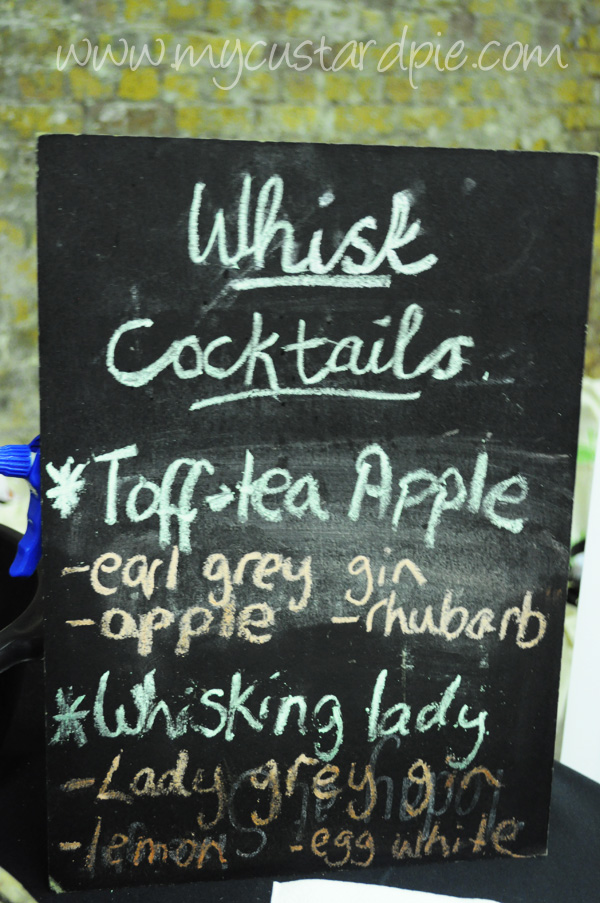 www.mycustardpie.com
Whisk
Cocktails.
* Toff-tea Apple
-earl grey gin
-apple -rhubarb
*Whisking lady
-Lady grey gin
-lemon -egg white